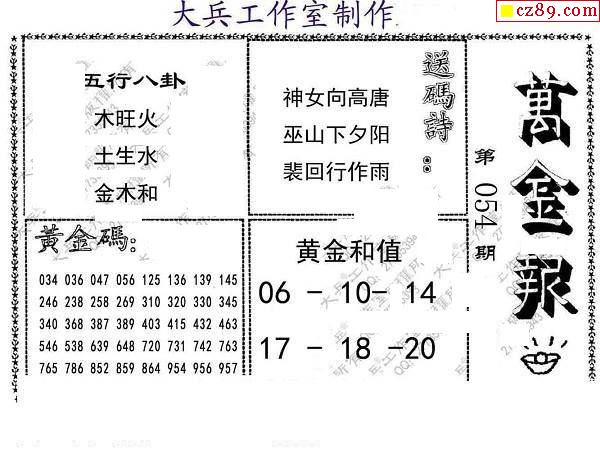 大兵工作室制作
cz89.com
五行八卦
木旺火
土生水
金木和
送碼詩：
神女向高唐
巫山下夕阳
裴回行作雨
萬金報
第054期
黃金碼：
034 036 047 056 125 136 139 145
246 238 258 269 310 320 330 345
340 368 387 389 403 415 432 463
546 538 639 648 720 731 742 763
765 786 852 859 864 954 956 957
黄金和值
06 - 10- 14
17 - 18 -20